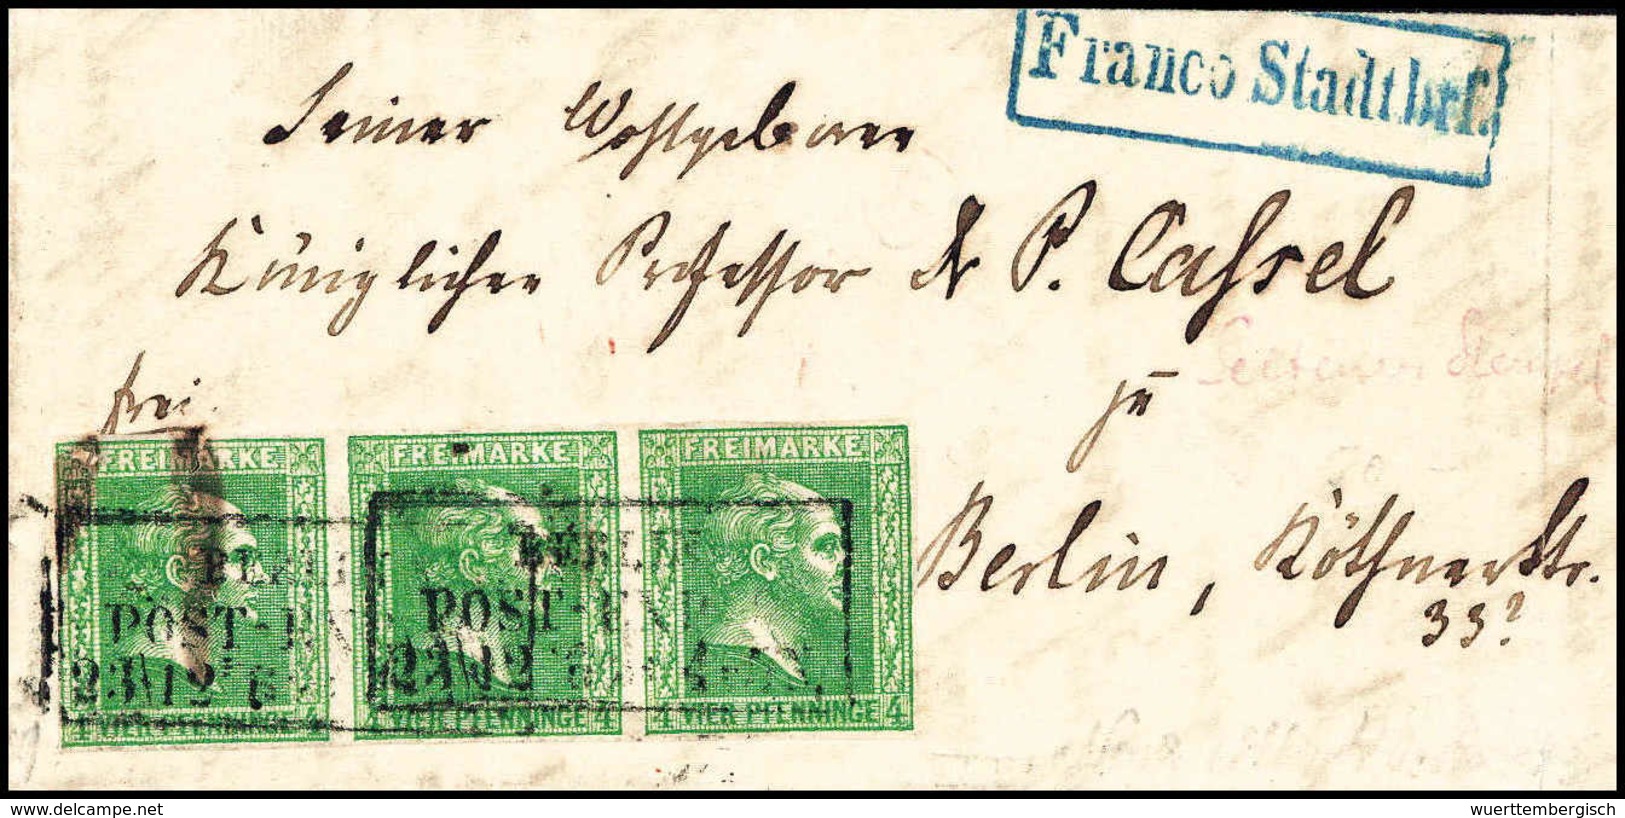 Franco Stadtbrf.
Seiner Wohlgeboren
Königlicher Professor Dr P. Cassel
frei.
zu
Berlin, Köthnerstr.
33?
FREIMARKE FREIMARKE FREIMARKE
BERLIN BERLIN
POST-EXP. POST-EXP.
23\12 23\12
4 VIER PFENNINGE 4 4 VIER PFENNINGE 4 4 VIER PFENNINGE 4
www.delcampe.net wuerttembergisch